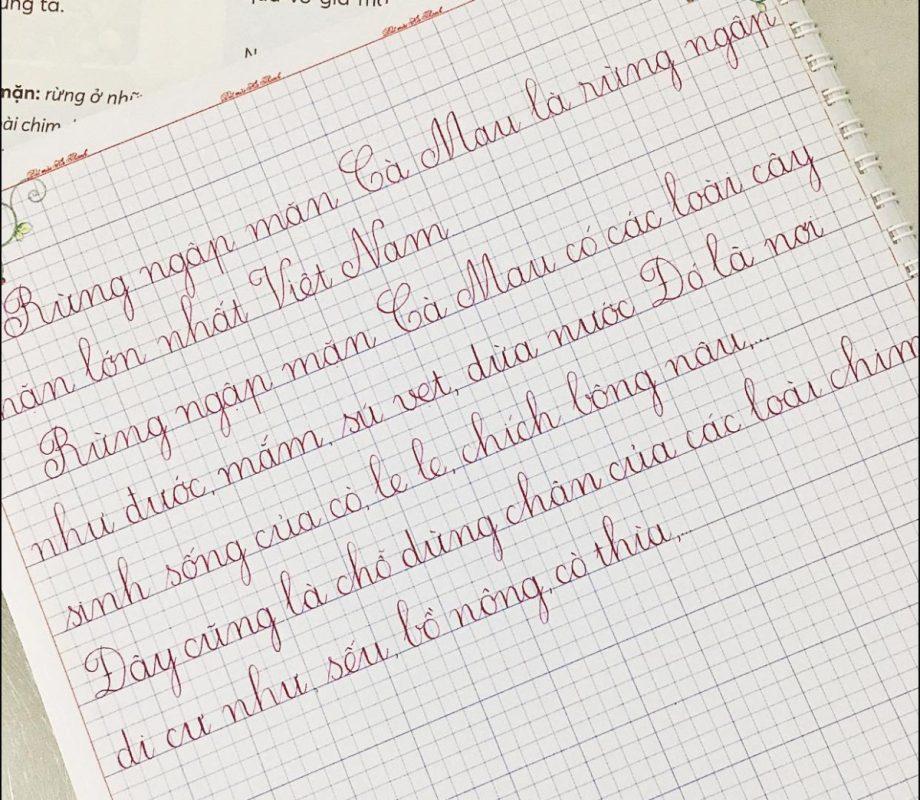 ung ta.
mặn: rừng ở nhữ
ài chim
Rừng ngập mặn Cà Mau là rừng ngập
mặn lớn nhất Việt Nam
Rừng ngập mặn Cà Mau có các loài cây
như đước, mắm, sú vẹt, dừa nước Đó là nơi
sinh sống của cò, le le, chích bông nâu,...
Đây cũng là chỗ dừng chân của các loài chim
di cư như, sếu, bồ nông, cò thìa,...